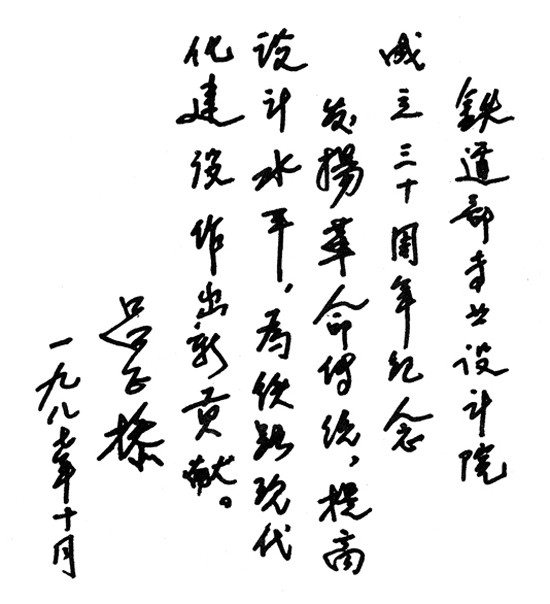 铁道部专业设计院
成立三十周年纪念
发揚革命传统，提高
设计水平，为铁路现代
化建设作出新贡献。
吕正操
一九八七年十月